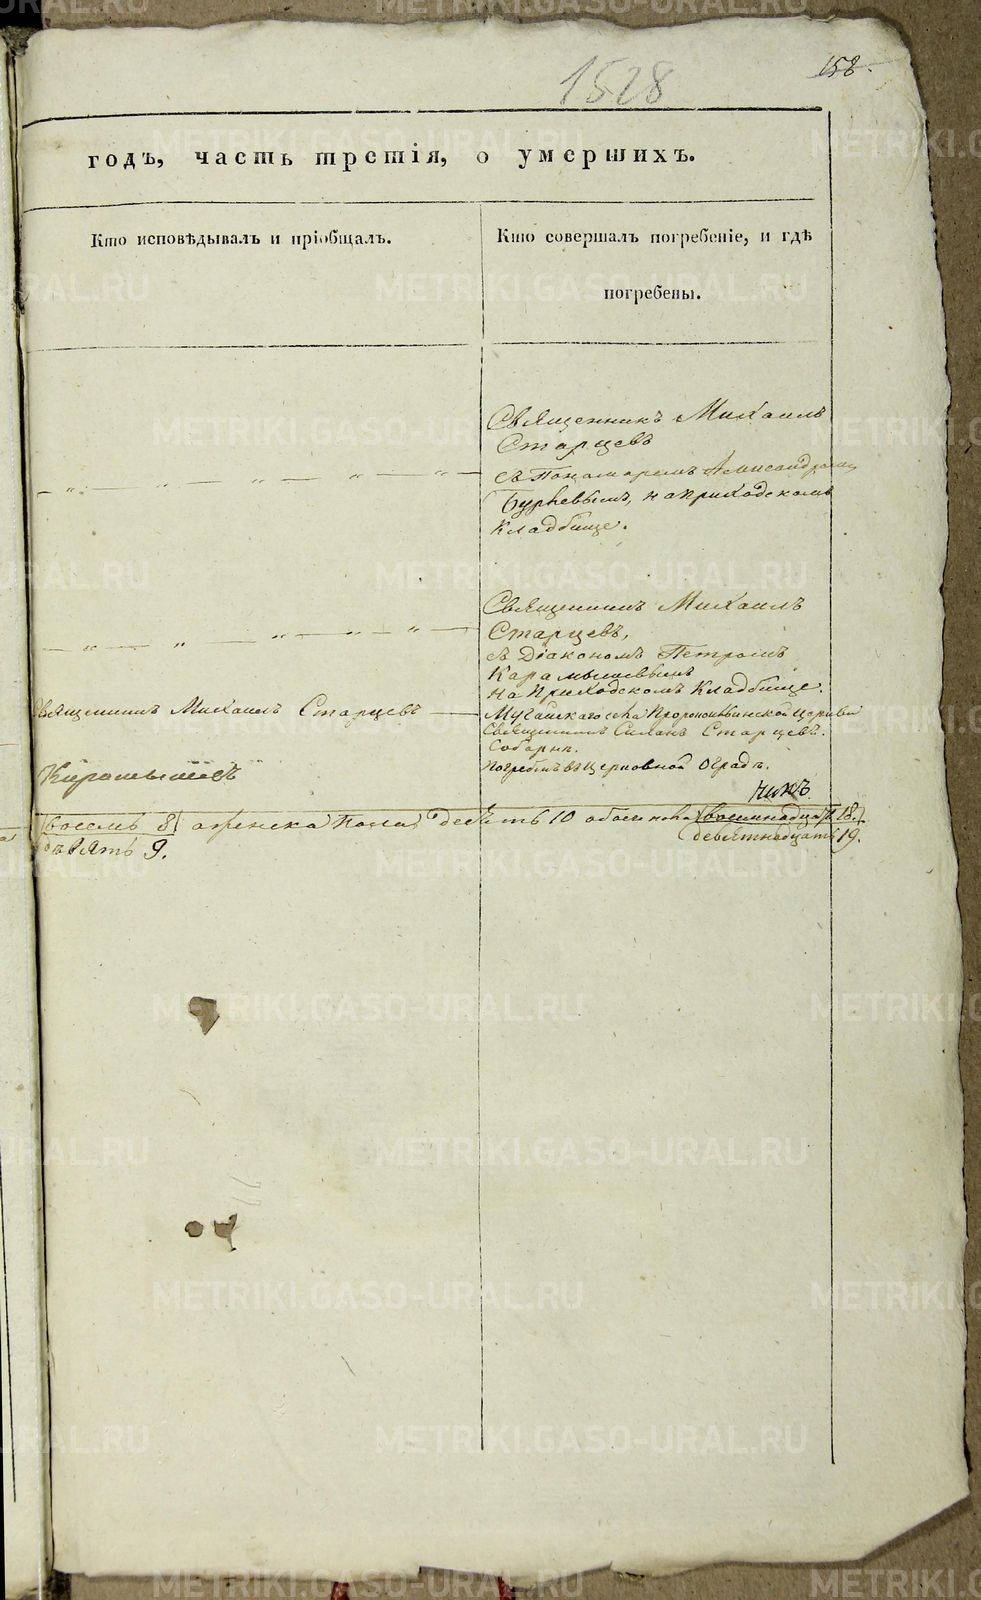 1528
158.
годъ, часть третія, о умершихъ.
Кто исповѣдывалъ и пріобщалъ.
Кто совершалъ погребеніе, и гдѣ
погребены.
Священникъ Михаилъ
Старцевъ
съ Пономаремъ
на приходскомъ
Кладбище.
Священникъ Михаилъ
Старцевъ,
съ Діакономъ Петромъ
Карамышевымъ
на Приходскомъ Кладбище.
Священникъ Михаилъ Старцевъ
Мугайскаго села Пророкоильинской Церкви
Священникъ Старцевъ.
Соборнѣ.
Погребенъ въ Церковной Оградѣ.
Карамышевъ
никъ
восемь 8 а женска пола десять 10 обоего пола восемнадцать 18.
девять 9.
девятнадцать 19.
METRIKI.GASO-URAL.RU